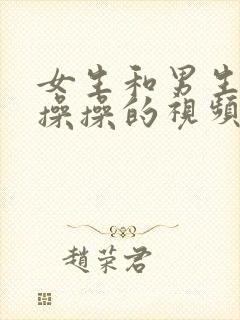 女生和男生
操操的視頻
趙荣君